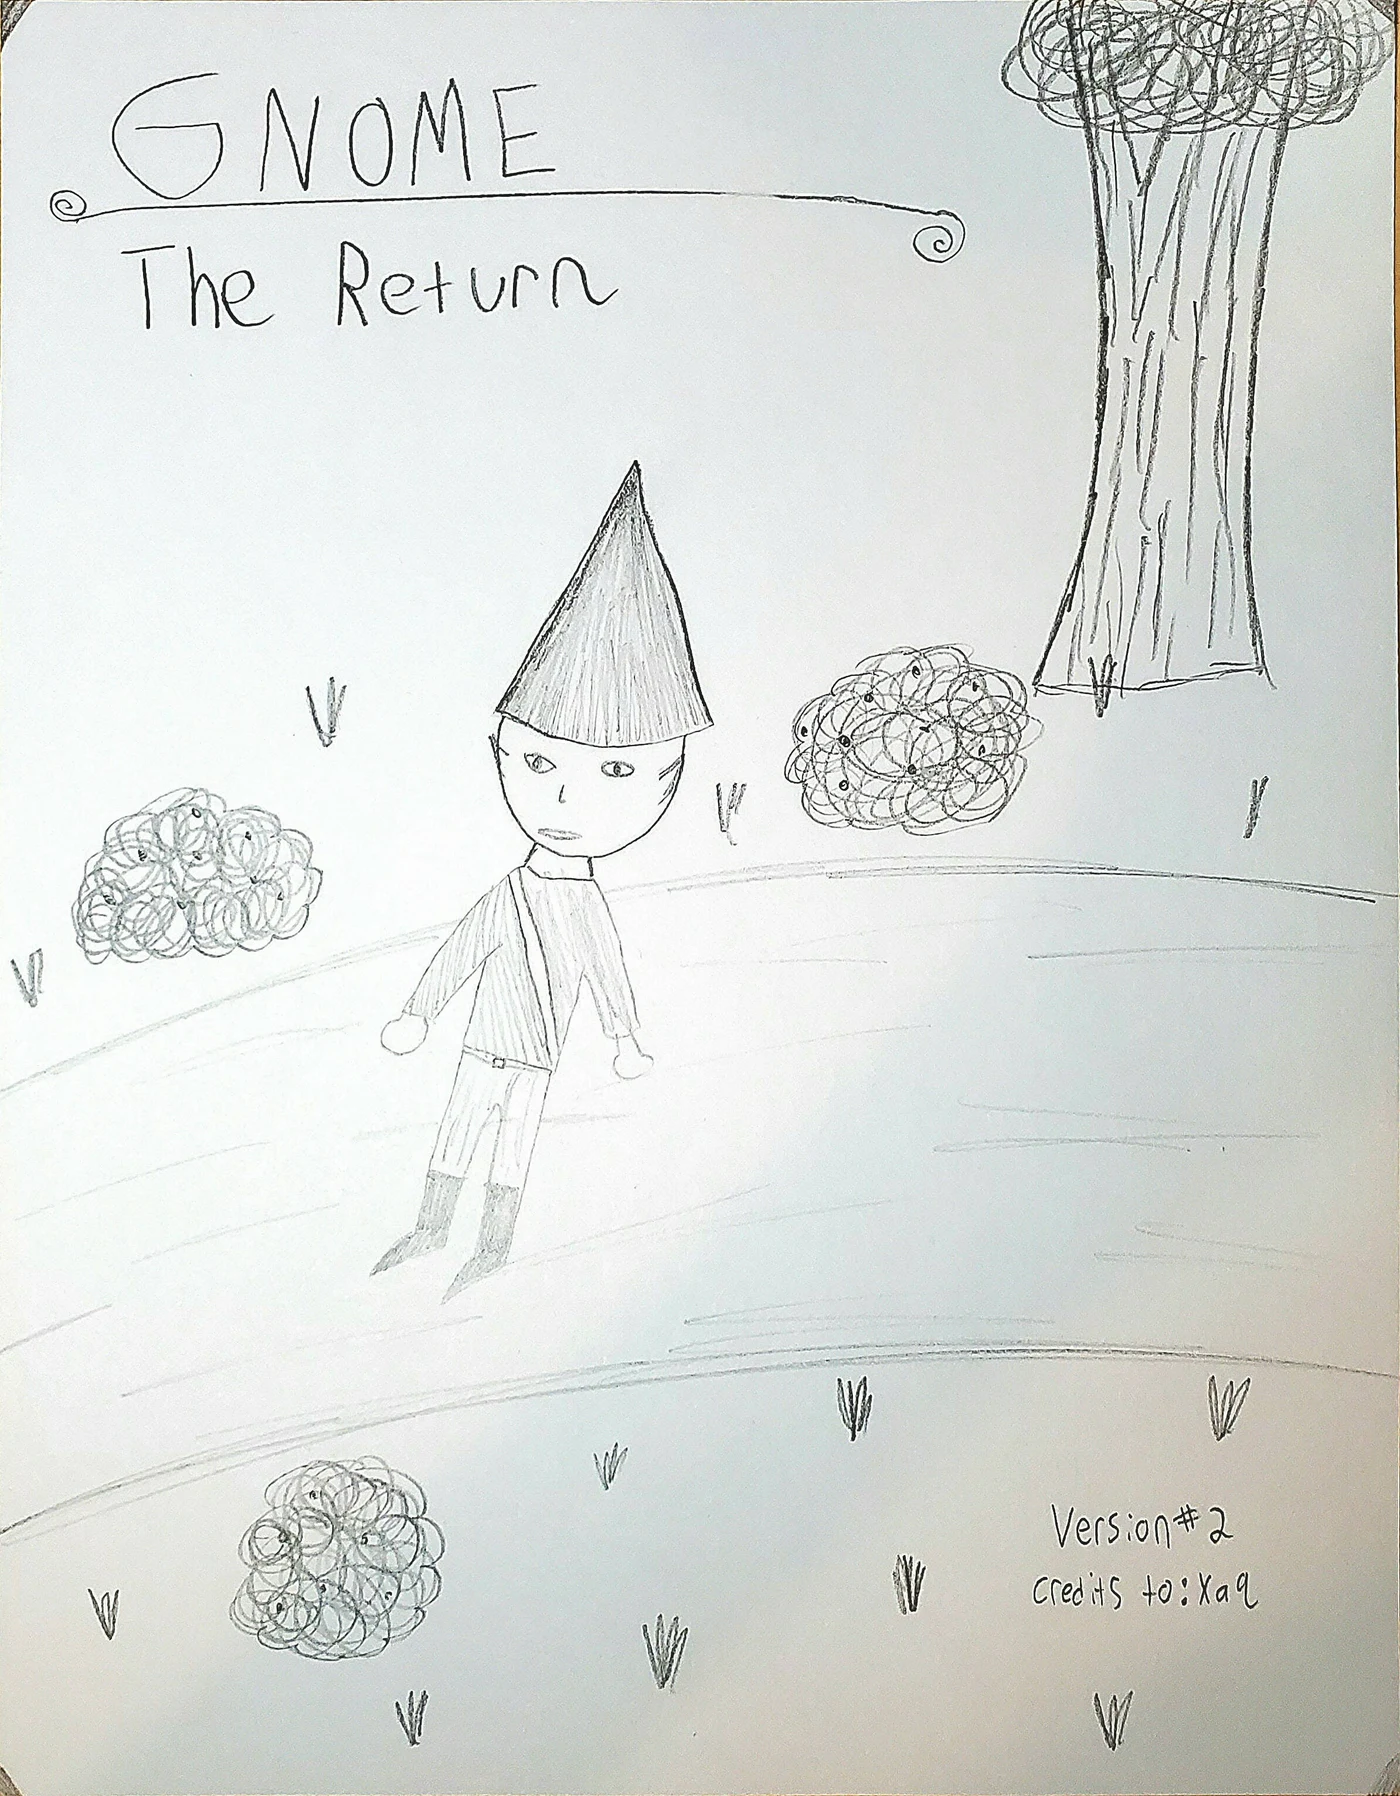 GNOME
The Return
Version #2
credits to: Xaq